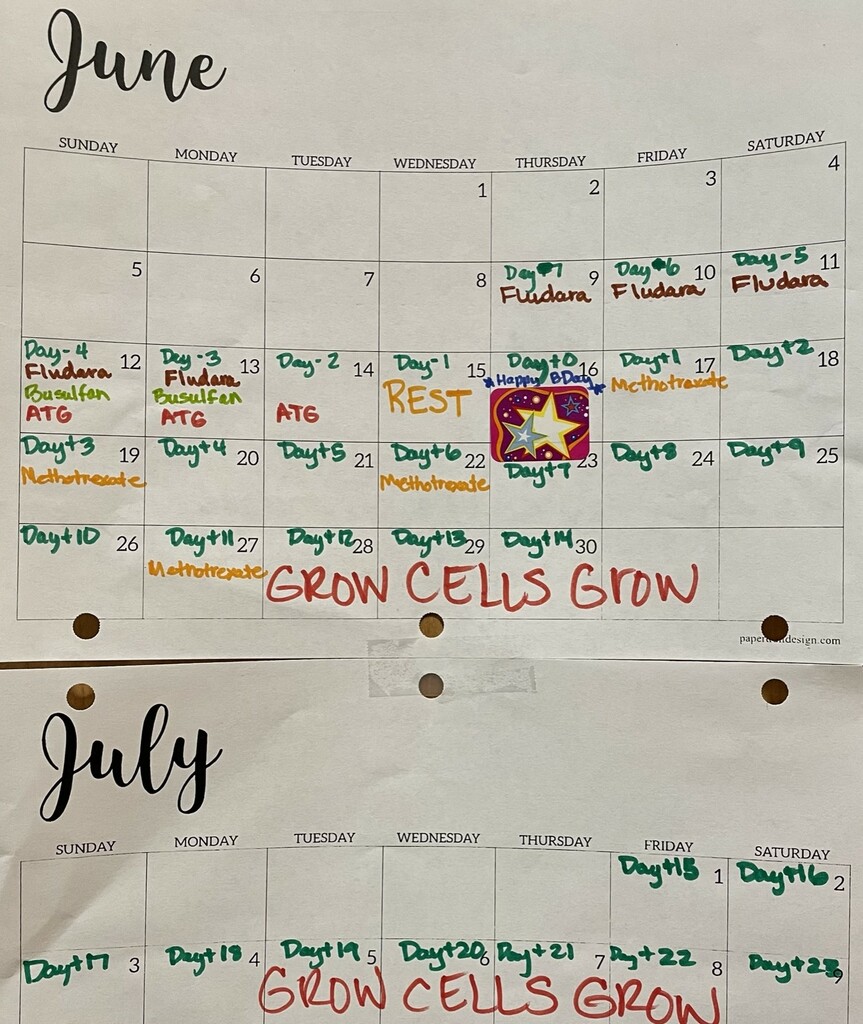 June
SUNDAY MONDAY TUESDAY WEDNESDAY THURSDAY FRIDAY SATURDAY
1 2 3 4
5 6 7 8
Day-7 9
Fludara
Day-6 10
Fludara
Day-5 11
Fludara
Day-4 12
Fludara
Busulfan
ATG
Day-3 13
Fludara
Busulfan
ATG
Day-2 14
ATG
Day-1 15
REST
Day+0 16
*Happy BDay*
Day+1 17
Methotrexate
Day+2 18
Day+3 19
Methotrexate
Day+4 20
Day+5 21
Day+6 22
Methotrexate
23
Day+7
Day+8 24
Day+9 25
Day+10 26
Day+11 27
Methotrexate
Day+12 28
Day+13 29
Day+14 30
GROW CELLS GROW
design.com
July
SUNDAY MONDAY TUESDAY WEDNESDAY THURSDAY FRIDAY SATURDAY
Day+15 1
Day+16 2
Day+17 3
Day+18 4
Day+19 5
Day+20 6
Day+21 7
Day+22 8
Day+23 9
GROW CELLS GROW